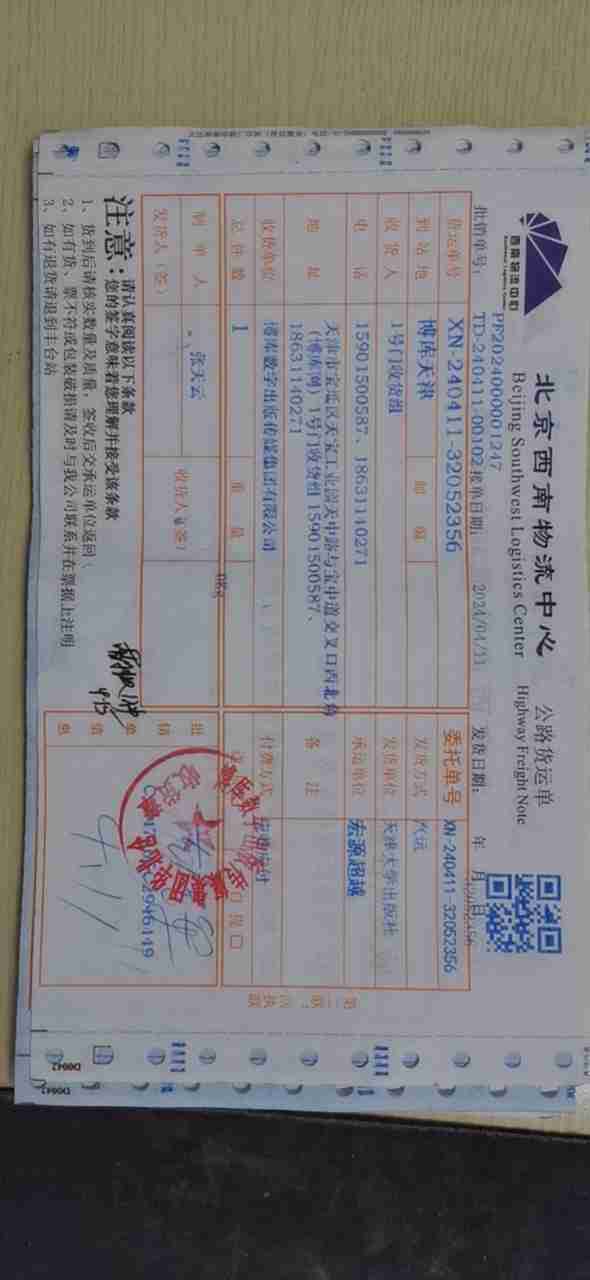 西南物流中心
北京西南物流中心
公路货运单
Beijing Southwest Logistics Center
Highway Freight Note
PF2024000001247
批销单号：
TD-240411-00102
接单日期：
2024/04/11
发货日期：
年 月 日
货运单号
XN-240411-32052356
委托单号
XN-240411-32052356
到站地
博库天津
邮编
发货方式
汽运
收货人
1号门收货组
发货单位
天津大学出版社
电话
15901500587、18631140271
承运单位
宏源超越
地址
天津市宝坻区天宝工业园天中路与宝中道交叉口西北角
（博库网）1号门收货组 15901500587、
18631140271
备注
收货单位
博库数字出版传媒集团有限公司
付费方式
总件数
1
重量
自提口
制单人
张天云
收货人（签）
发货人（签）
批销单信息
注意：
请认真阅读以下条款
您的签字意味着您理解并接受该条款
1、货到后请核实数量及质量，签收后交承运单位返回
2、如有货、票不符或包装破损请及时与我公司联系并在票据上注明
3、如有退货请退到丰台站
D0042
D0042